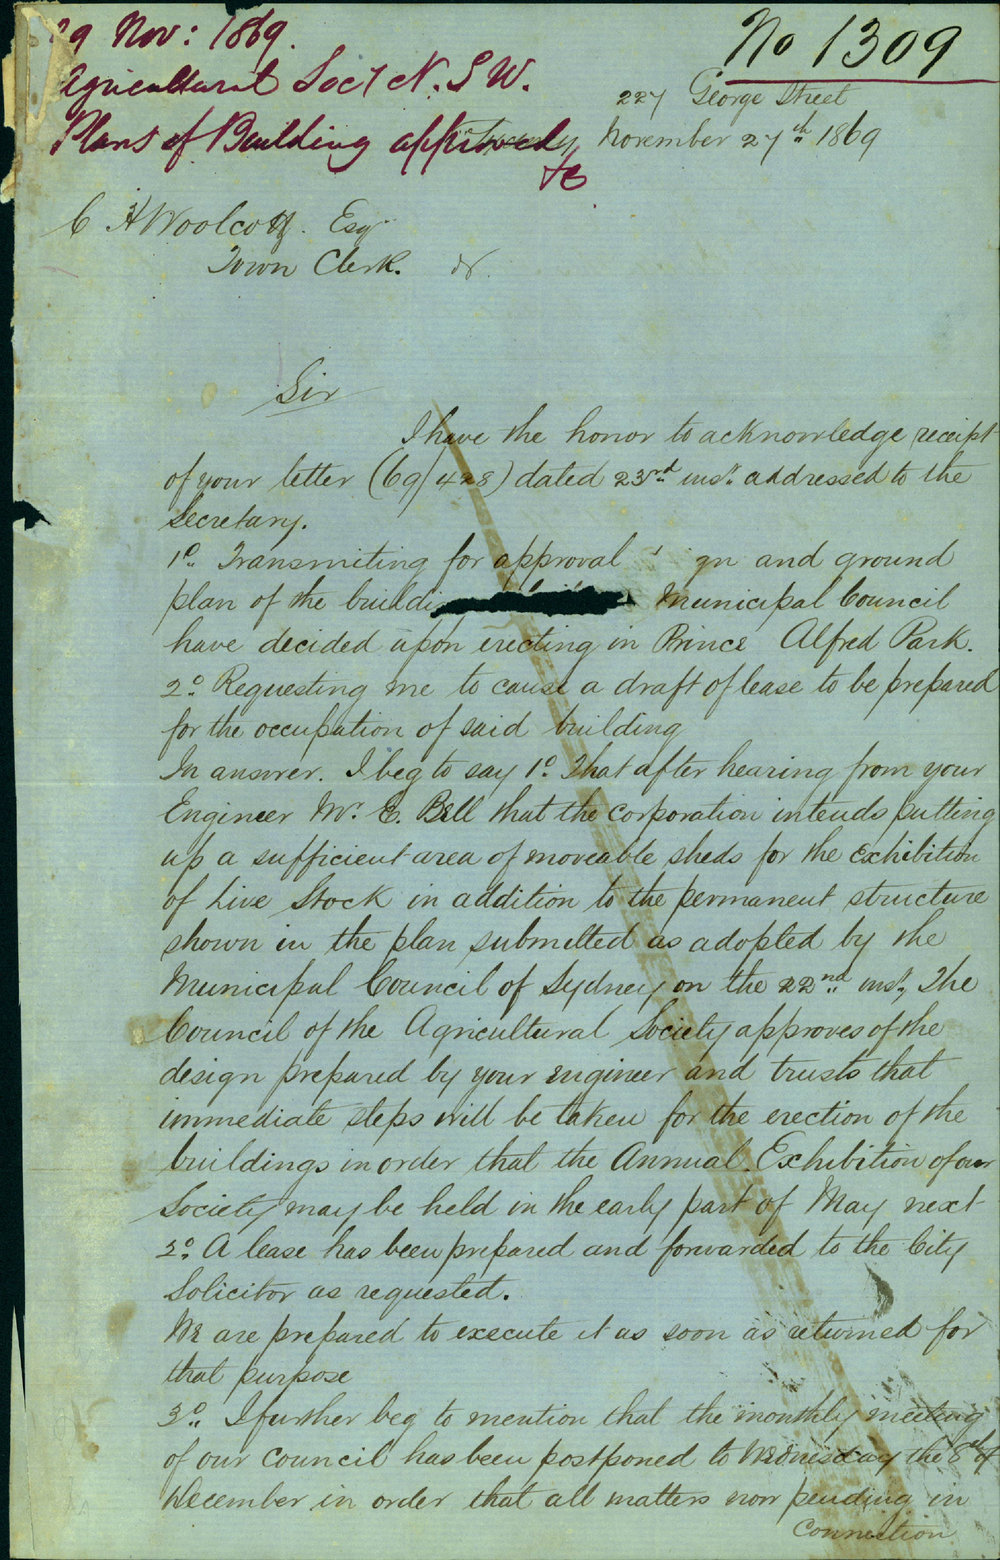 29 Nov: 1869.
Agricultural Socy N. S W.
Plans of Building approved
&c
No 1309
227 George Street
Sydney November 27th 1869
C H Woolcott. Esq
Town Clerk.
Sir
I have the honor to acknowledge receipt
of your letter (69/428) dated 23rd inst. addressed to the
Secretary.
1o. Transmiting for approval gn and ground
plan of the buildi Municipal Council
have decided upon erecting in Prince Alfred Park.
2o. Requesting me to cause a draft of lease to be prepared
for the occupation of said building
In answer. I beg to say 1o. That after hearing from your
Engineer Mr. E. Bell that the corporation intends putting
up a sufficient area of moveable sheds for the exhibition
of Live Stock in addition to the permanent structure
shown in the plan submitted as adopted by the
Municipal Council of Sydney on the 22nd inst, The
Council of the Agricultural Society approves of the
design prepared by your engineer and trusts that
immediate steps will be taken for the erection of the
buildings in order that the Annual Exhibition of our
Society may be held in the early part of May next
2o. A lease has been prepared and forwarded to the City
Solicitor as requested.
We are prepared to execute it as soon as returned for
that purpose
3o. I further beg to mention that the monthly meeting
of our Council has been postponed to Wednesday the 8th of
December in order that all matters now pending in
Connection